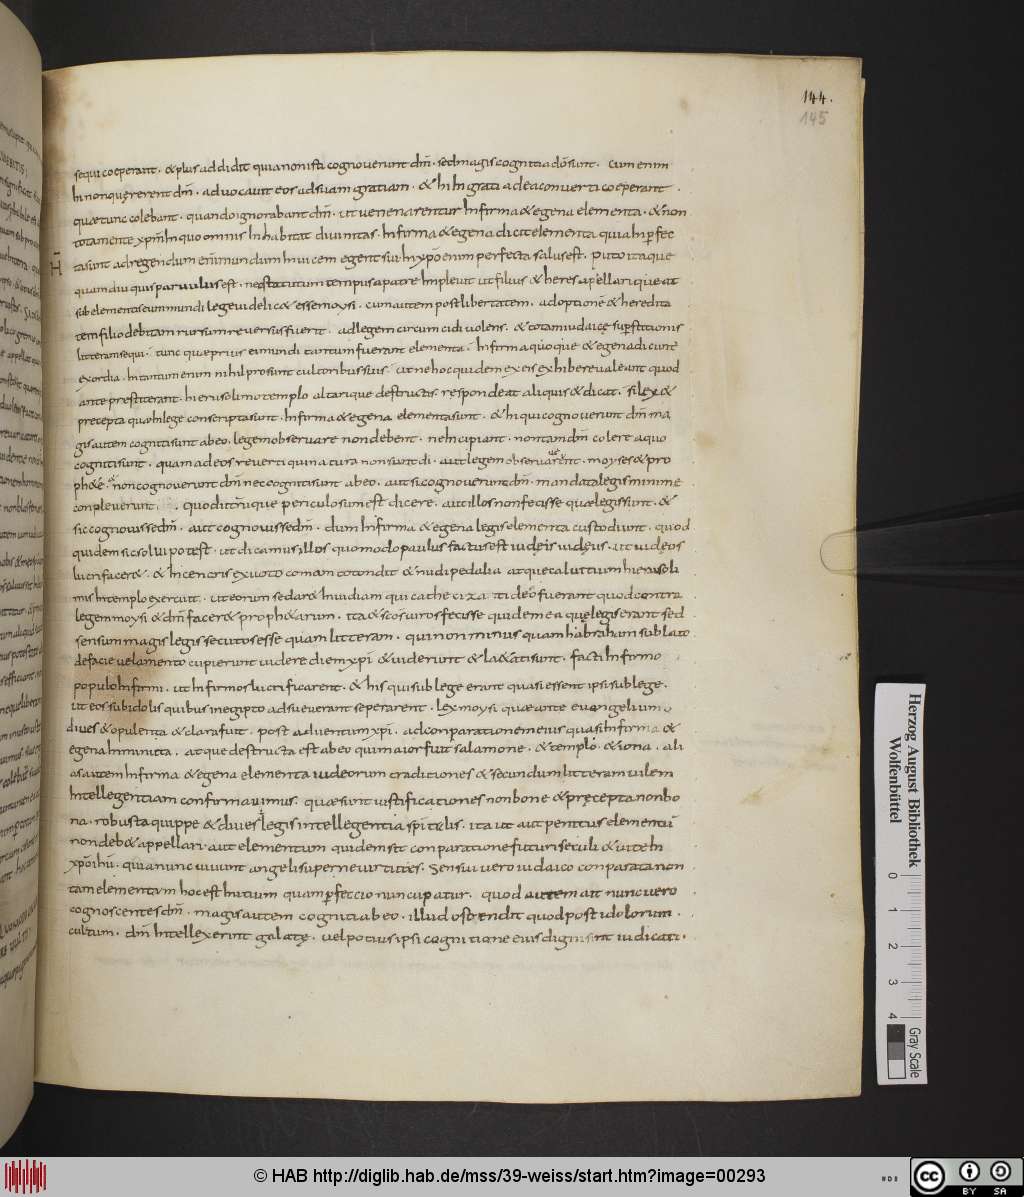 144.
145
sequi coeperant · & plus addidit quia non isti cognoverunt dm̄ · sed magis cogniti a dō sunt · cum enim
hi non quererent dm̄ · advocavit eos ad suam gratiam · & hi hi grati a dea converti coeperant ·
quae tunc colebant · quando ignorabant dm̄ · ut venerarentur Infirma & egena elementa · & non
tota mente xpm̄ In quo omnis Inhabitat divinitas · Infirma & egena dicit elementa quia In perfec
ta sunt ad regendum em̄ mundum Invicem egent sui · In xpō enim perfecta salus est · puto itaque
quam diu quis parvulus est · nec statutum tempus a patre Implevit ut filius & heres appellari queat
sub elementis eum mundi lege videlic& esse moysi · cum autem post libertatem · adoptionē & heredita
tem filio debitam rursum reversus fuerit · ad legem circumcidi volens · & totam iudaicę superstitionis
litteram sequi · tunc quae prius ei mundi tantum fuerant elementa · Infirma quoque & egena dicunt
exordia · In tantum enim nihil prosunt cultoribus suis · ut ne hoc quidem ex eis exhibere valeant quod
ante prestiterant · hierusolimo templo altarique destructis · respondeat aliquis & dicat · si lex &
precepta quae In lege conscripta sunt · Infirma & egena elementa sunt · & hi qui cognoverunt dm̄ ma
gis autem cogniti sunt ab eo · legem observare non debent · ne Incipiant · non tam dm̄ colere a quo
cogniti sunt · quam ad eos reverti qui natura non sunt di · aut legem observarent · moyses & pro
ph&ę · non cognoverunt dm̄ nec cogniti sunt ab eo · aut si cognoverunt dm̄ · mandata legis minime
compleverunt · Quod utrumque periculosum est dicere · aut illos non fecisse quae legis sunt · &
sic cognovisse dm̄ · aut cognovisse dm̄ · dum Infirma & egena legis elementa custodiunt · quod
quidem sic solui potest · ut dicamus illos quomodo paulus factus est iudęis iudęus · ut iudęos
lucrifacer& · & In cencris ex voto comam totondit & nudipedalia atque calvitium hierusoli
mis In templo exercuit · ut eorum sedar& Invidiam qui
legem moysi & dm̄ facer& prophetarum · ita & scōs viros fecisse quidem ea quę legis erant sed
sensum magis legis secutos esse quam litteram · qui non minus quam habraham sublato
de facie velamento cupierunt videre diem xpi & viderunt & laetati sunt · facti Infirmo
populo Infirmi · ut Infirmos lucrificarent · & his qui sub lege erant quasi essent ipsi sub lege ·
ut eos sub idolis quibus In egipto adsueverant seperarent · Lex moysi quae ante evangelium
dives & opulenta & clara fuit · post adventum xpi · ad conparationem eius quasi Infirma &
egena Imminuta · atque destructa est ab eo qui maior fuit salamone · & templo · & iona · ali
as autem Infirma & egena elementa iudeorum traditiones & secundum litteram vilem
Intellegentiam confirmavimus · quae sunt iustificationes non bonę & precepta non bo
na · robusta quippe & dives legis intellegentia spi͞talis · ita ut aut penitus elementū
non deb& appellari · aut elementum quidem sit conparatione futuri seculi & vitę In
xpō ihū · qua nunc vivunt angeli supernę virtutes · Sensui vero iudaico conparata non
tam elementum hoc est Initium quam perfectio nuncupatur · quod autem ait nunc vero
cognoscentes dm̄ · magis autem cogniti ab eo · illud ostendit quod post idolorum
cultum · dm̄ Intellexerint galatę · vel potius ipsi cognitione eius digni sint iudicati ·
Herzog August Bibliothek
Wolfenbüttel
0 1 2 3 4
Gray Scale
© HAB http://diglib.hab.de/mss/39-weiss/start.htm?image=00293
cc BY SA